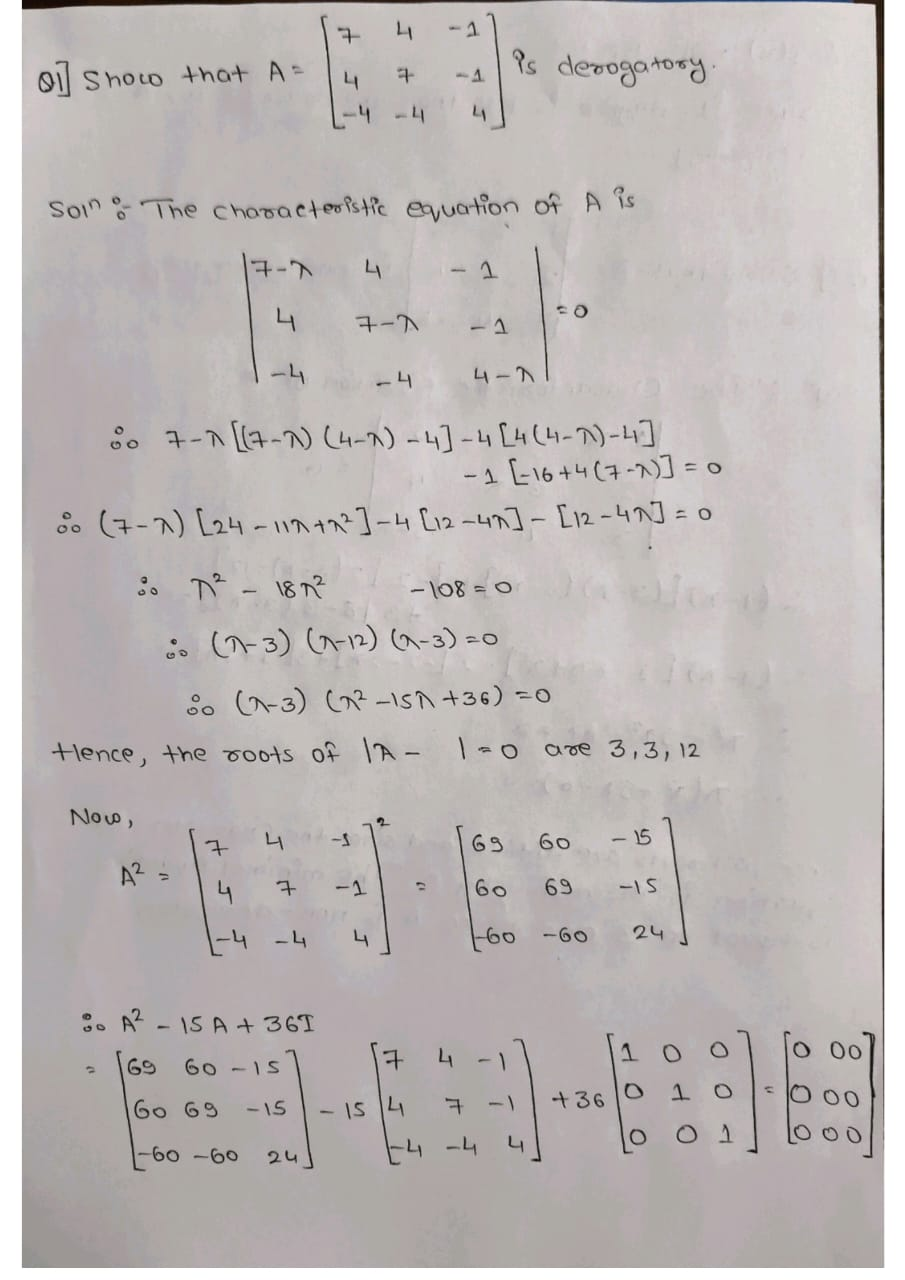 Q1] Show that A = [7 4 -1
4 7 -1
-4 -4 4] is derogatory.
Soln :- The characteristic equation of A is
|7-λ 4 -1
4 7-λ -1
-4 -4 4-λ| = 0
∴ 7-λ[(7-λ) (4-λ) -4] -4 [4(4-λ)-4]
-1 [-16+4(7-λ)] = 0
∴ (7-λ) [24 - 11λ+λ²] -4 [12-4λ] - [12-4λ] = 0
∴ λ² - 18λ² -108 = 0
∴ (λ-3) (λ-12) (λ-3) = 0
∴ (λ-3) (λ² -15λ +36) = 0
Hence, the roots of |A - | = 0 are 3,3,12
Now,
A² = [7 4 -1
4 7 -1
-4 -4 4]² = [69 60 -15
60 69 -15
-60 -60 24]
∴ A² - 15A + 36I
= [69 60 -15
60 69 -15
-60 -60 24] - 15 [7 4 -1
4 7 -1
-4 -4 4] + 36 [1 0 0
0 1 0
0 0 1] = [0 0 0
0 0 0
0 0 0]